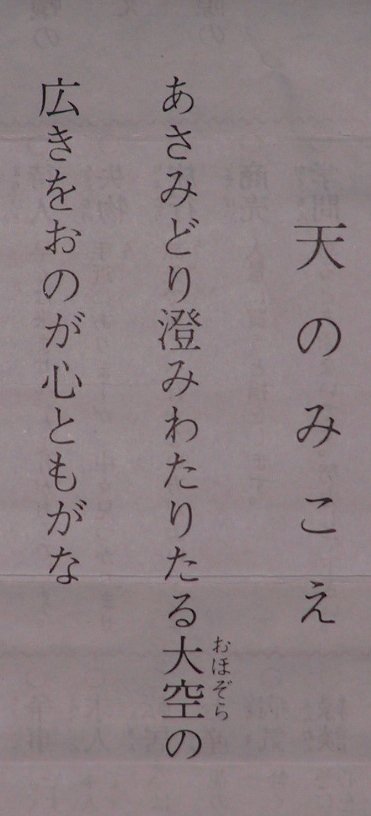 天のみこえ
あさみどり澄みわたりたる大空の
おほぞら
広きをおのが心ともがな